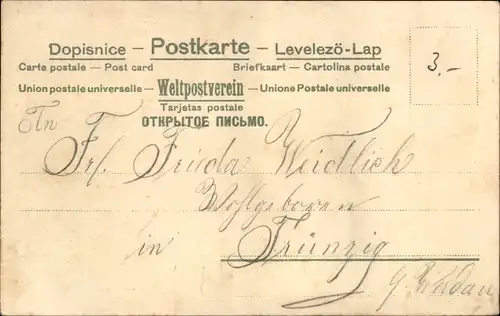 Dopisnice – Postkarte – Levelező-Lap
Carte postale — Post card Briefkaart — Cartolina postale
Union postale universelle – Weltpostverein – Unione Postale universelle
Tarjetas postale
ОТКРЫТОЕ ПИСЬМО.
3.-
An
Frl. Frieda Weidlich
Wohlgeboren
in Trünzig
b/ Werdau